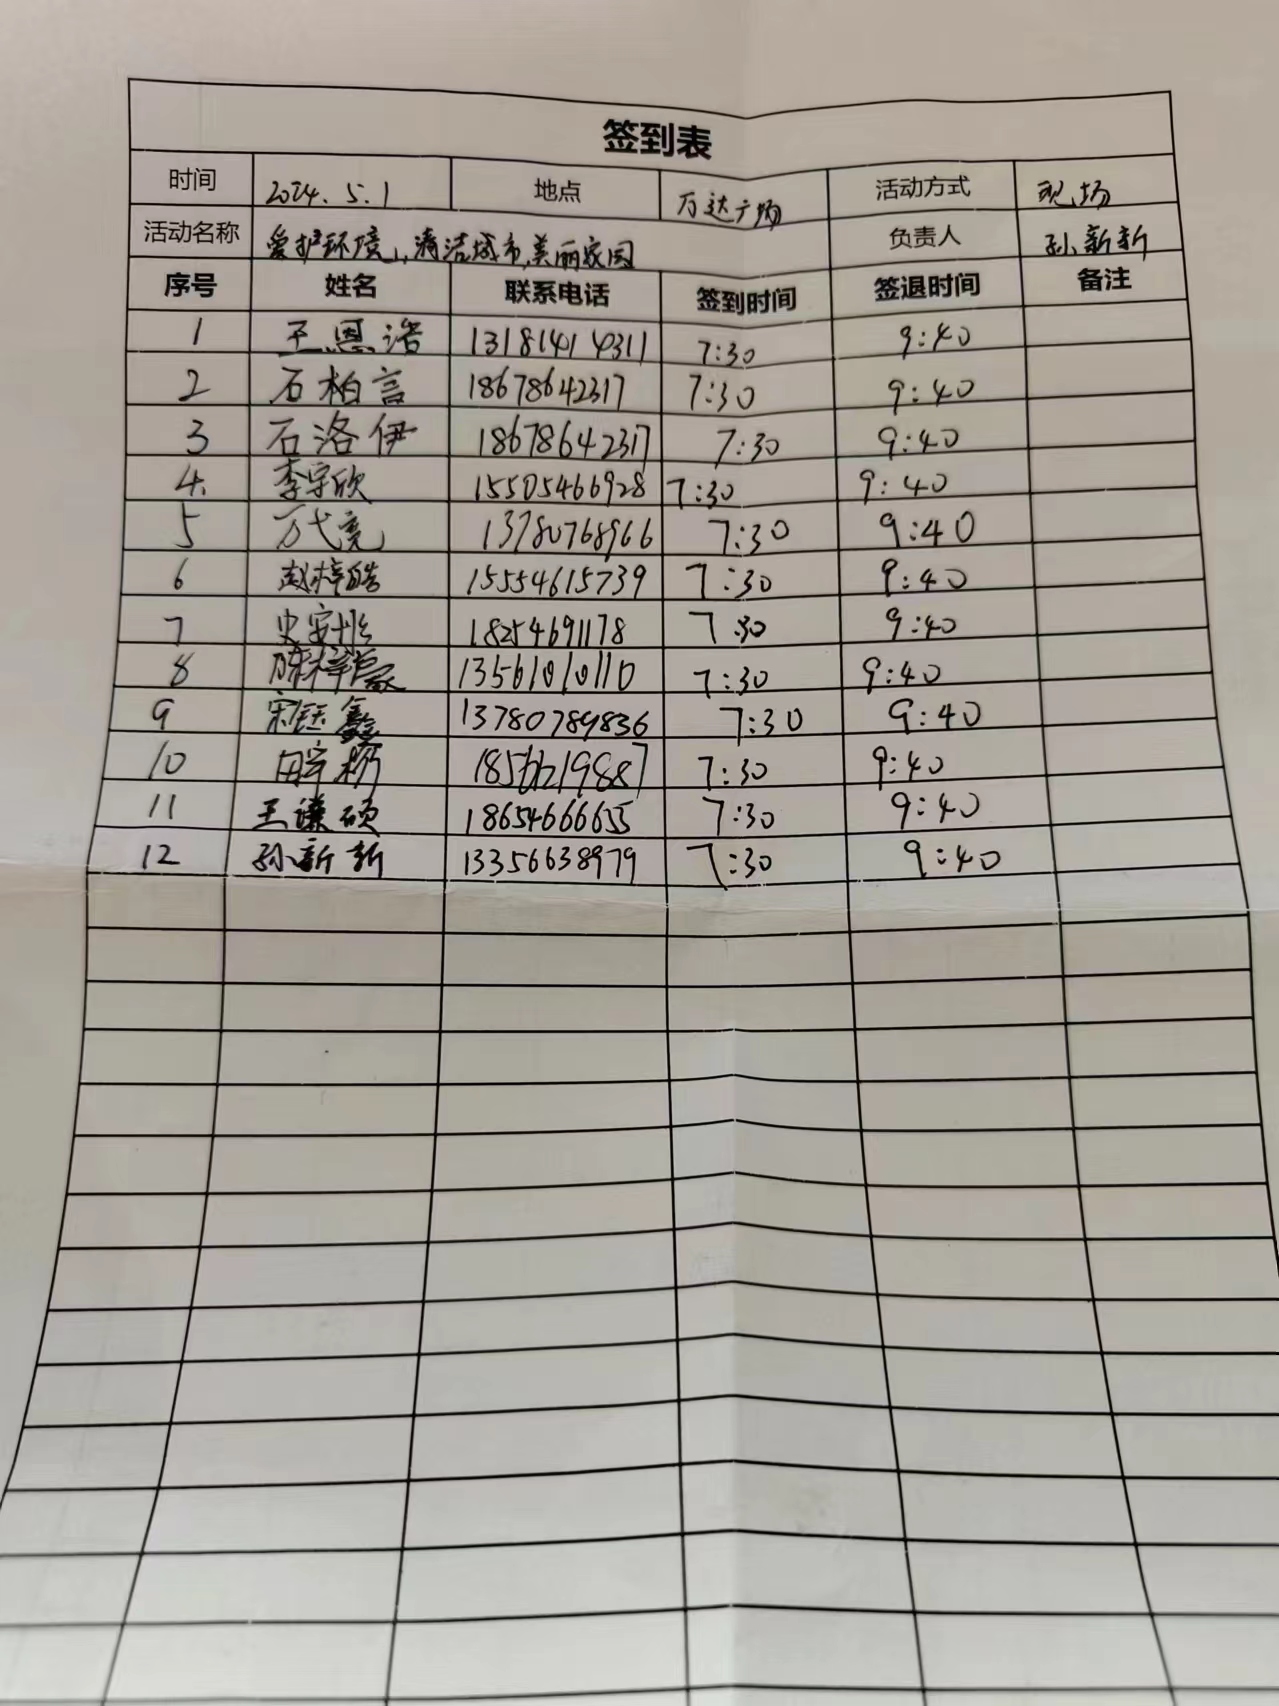 签到表
时间 2024.5.1 地点 万达广场 活动方式 现场
活动名称 爱护环境,清洁城市,美丽家园 负责人 孙新新
序号 姓名 联系电话 签到时间 签退时间 备注
1 王恩诺 13181414311 7:30 9:40
2 石柏言 18678642317 7:30 9:40
3 石洛伊 18678642317 7:30 9:40
4. 李宇欣 15505466928 7:30 9:40
5 万弋亮 13780768966 7:30 9:40
6 赵梓皓 15554615739 7:30 9:40
7 史安 18254691178 7:30 9:40
8 13561010110 7:30 9:40
9 宋钰鑫 13780789836 7:30 9:40
10 田宇杨 7:30 9:40
11 王谦硕 18654666655 7:30 9:40
12 孙新新 13356638979 7:30 9:40